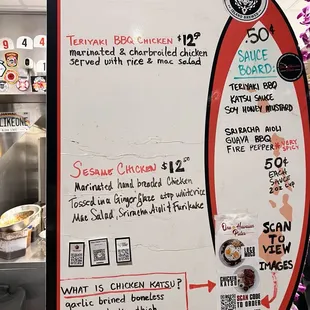 TERIYAKI BBQ CHICKEN $12.50
marinated & charbroiled chicken
served with rice & mac salad
SESAME CHICKEN $12.50
Marinated hand breaded Chicken
Tossed in a Ginger glaze atop white rice
Mac Salad, Sriracha Aioli & Furikake
WHAT IS CHICKEN KATSU?
garlic brined boneless
50¢
SAUCE
BOARD:
TERIYAKI BBQ
KATSU SAUCE
SOY HONEY MUSTARD
SRIRACHA AIOLI
GUAVA BBQ
FIRE PEPPER
VERY
SPICY
50¢
EACH
SAUCE
2oz cup
SCAN
TO
VIEW
IMAGES
CHICKEN
KATSU
SCAN CODE
TO ORDER
9 4 4
LIKEONE